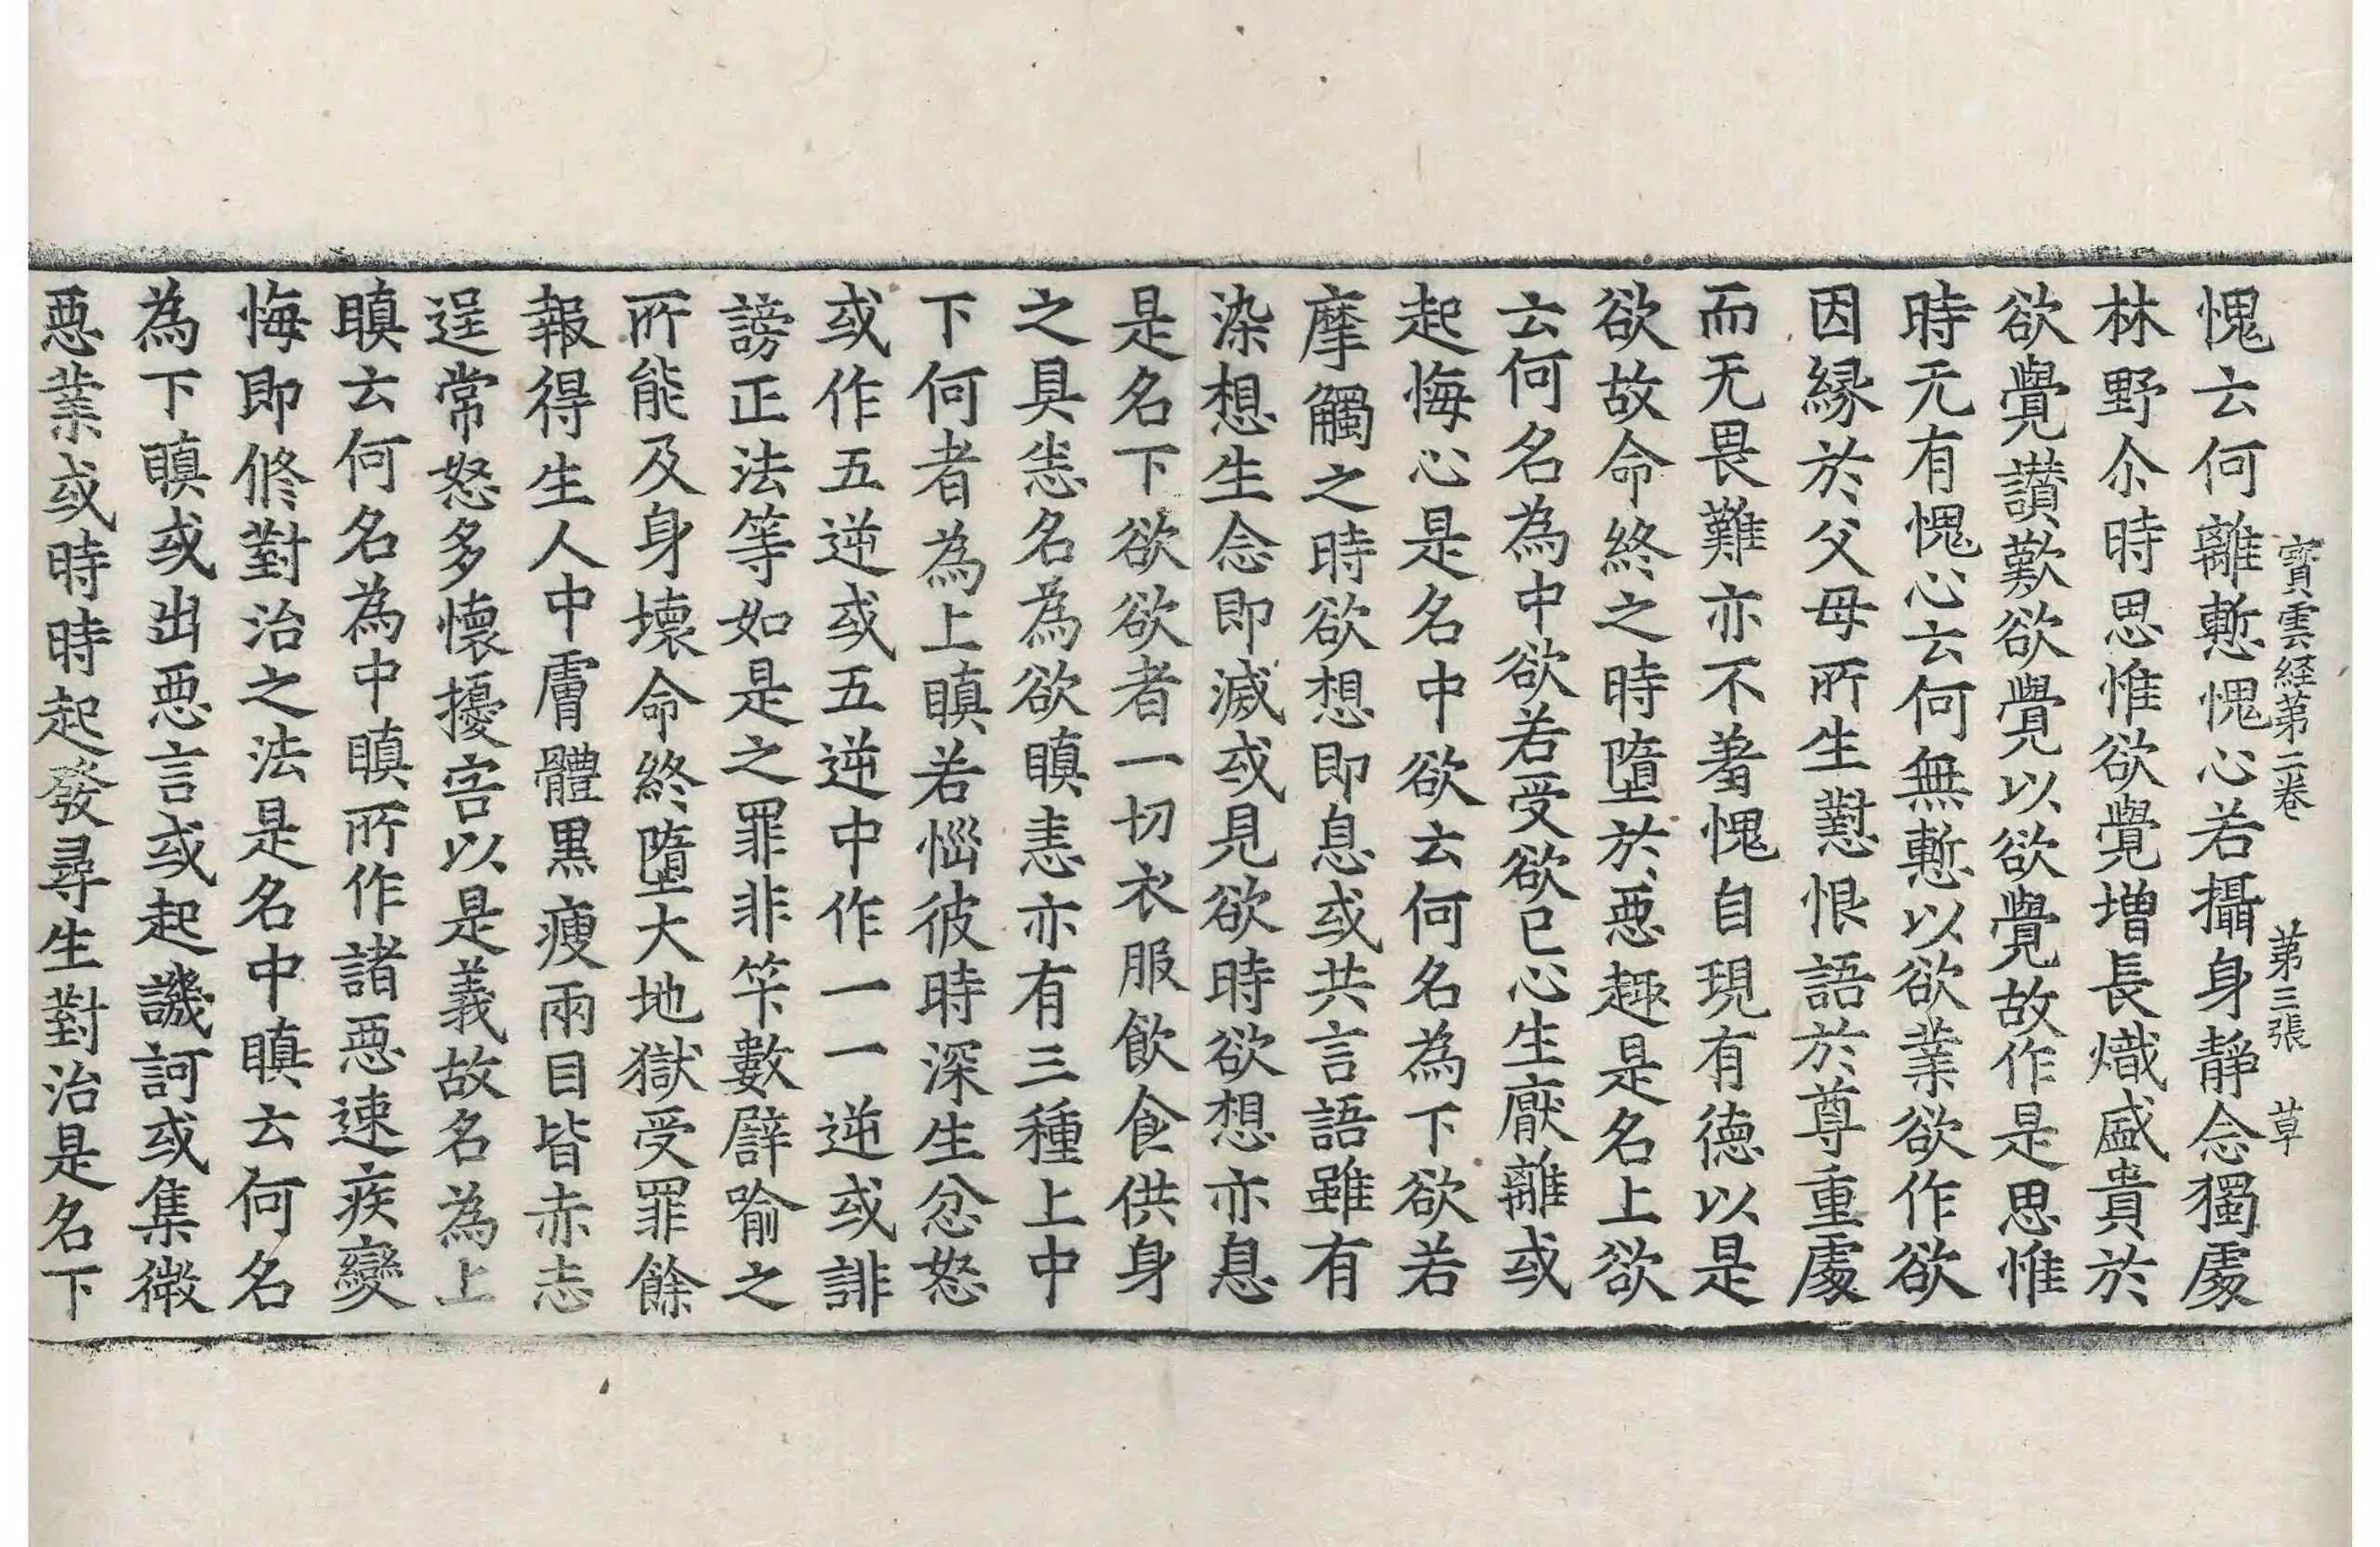 寳雲経第二卷　第三張　草
愧云何離慙愧心若攝身静念獨處
林野尒時思惟欲覺增長熾盛貴於
欲覺讃歎欲覺以欲覺故作是思惟
時无有愧心云何無慙以欲業欲作欲
因緣於父母所生懟恨語於尊重處
而无畏難亦不羞愧自現有德以是
欲故命終之時墮於惡趣是名上欲
云何名為中欲若受欲已心生厭離或
起悔心是名中欲云何名為下欲若
摩觸之時欲想即息或共言語雖有
染想生念即滅或見欲時欲想亦息
是名下欲欲者一切衣服飲食供身
之具恙名為欲瞋恚亦有三種上中
下何者為上瞋若惱彼時深生忿怒
或作五逆或五逆中作一一逆或誹
謗正法等如是之罪非笇數譬喻之
所能及身壞命終墮大地獄受罪餘
報得生人中膚體黒瘦兩目皆赤志
逞常怒多懷擾害以是義故名為上
瞋云何名為中瞋所作諸惡速疾變
悔即修對治之法是名中瞋云何名
為下瞋或出惡言或起譏訶或集微
惡業或時時起發尋生對治是名下